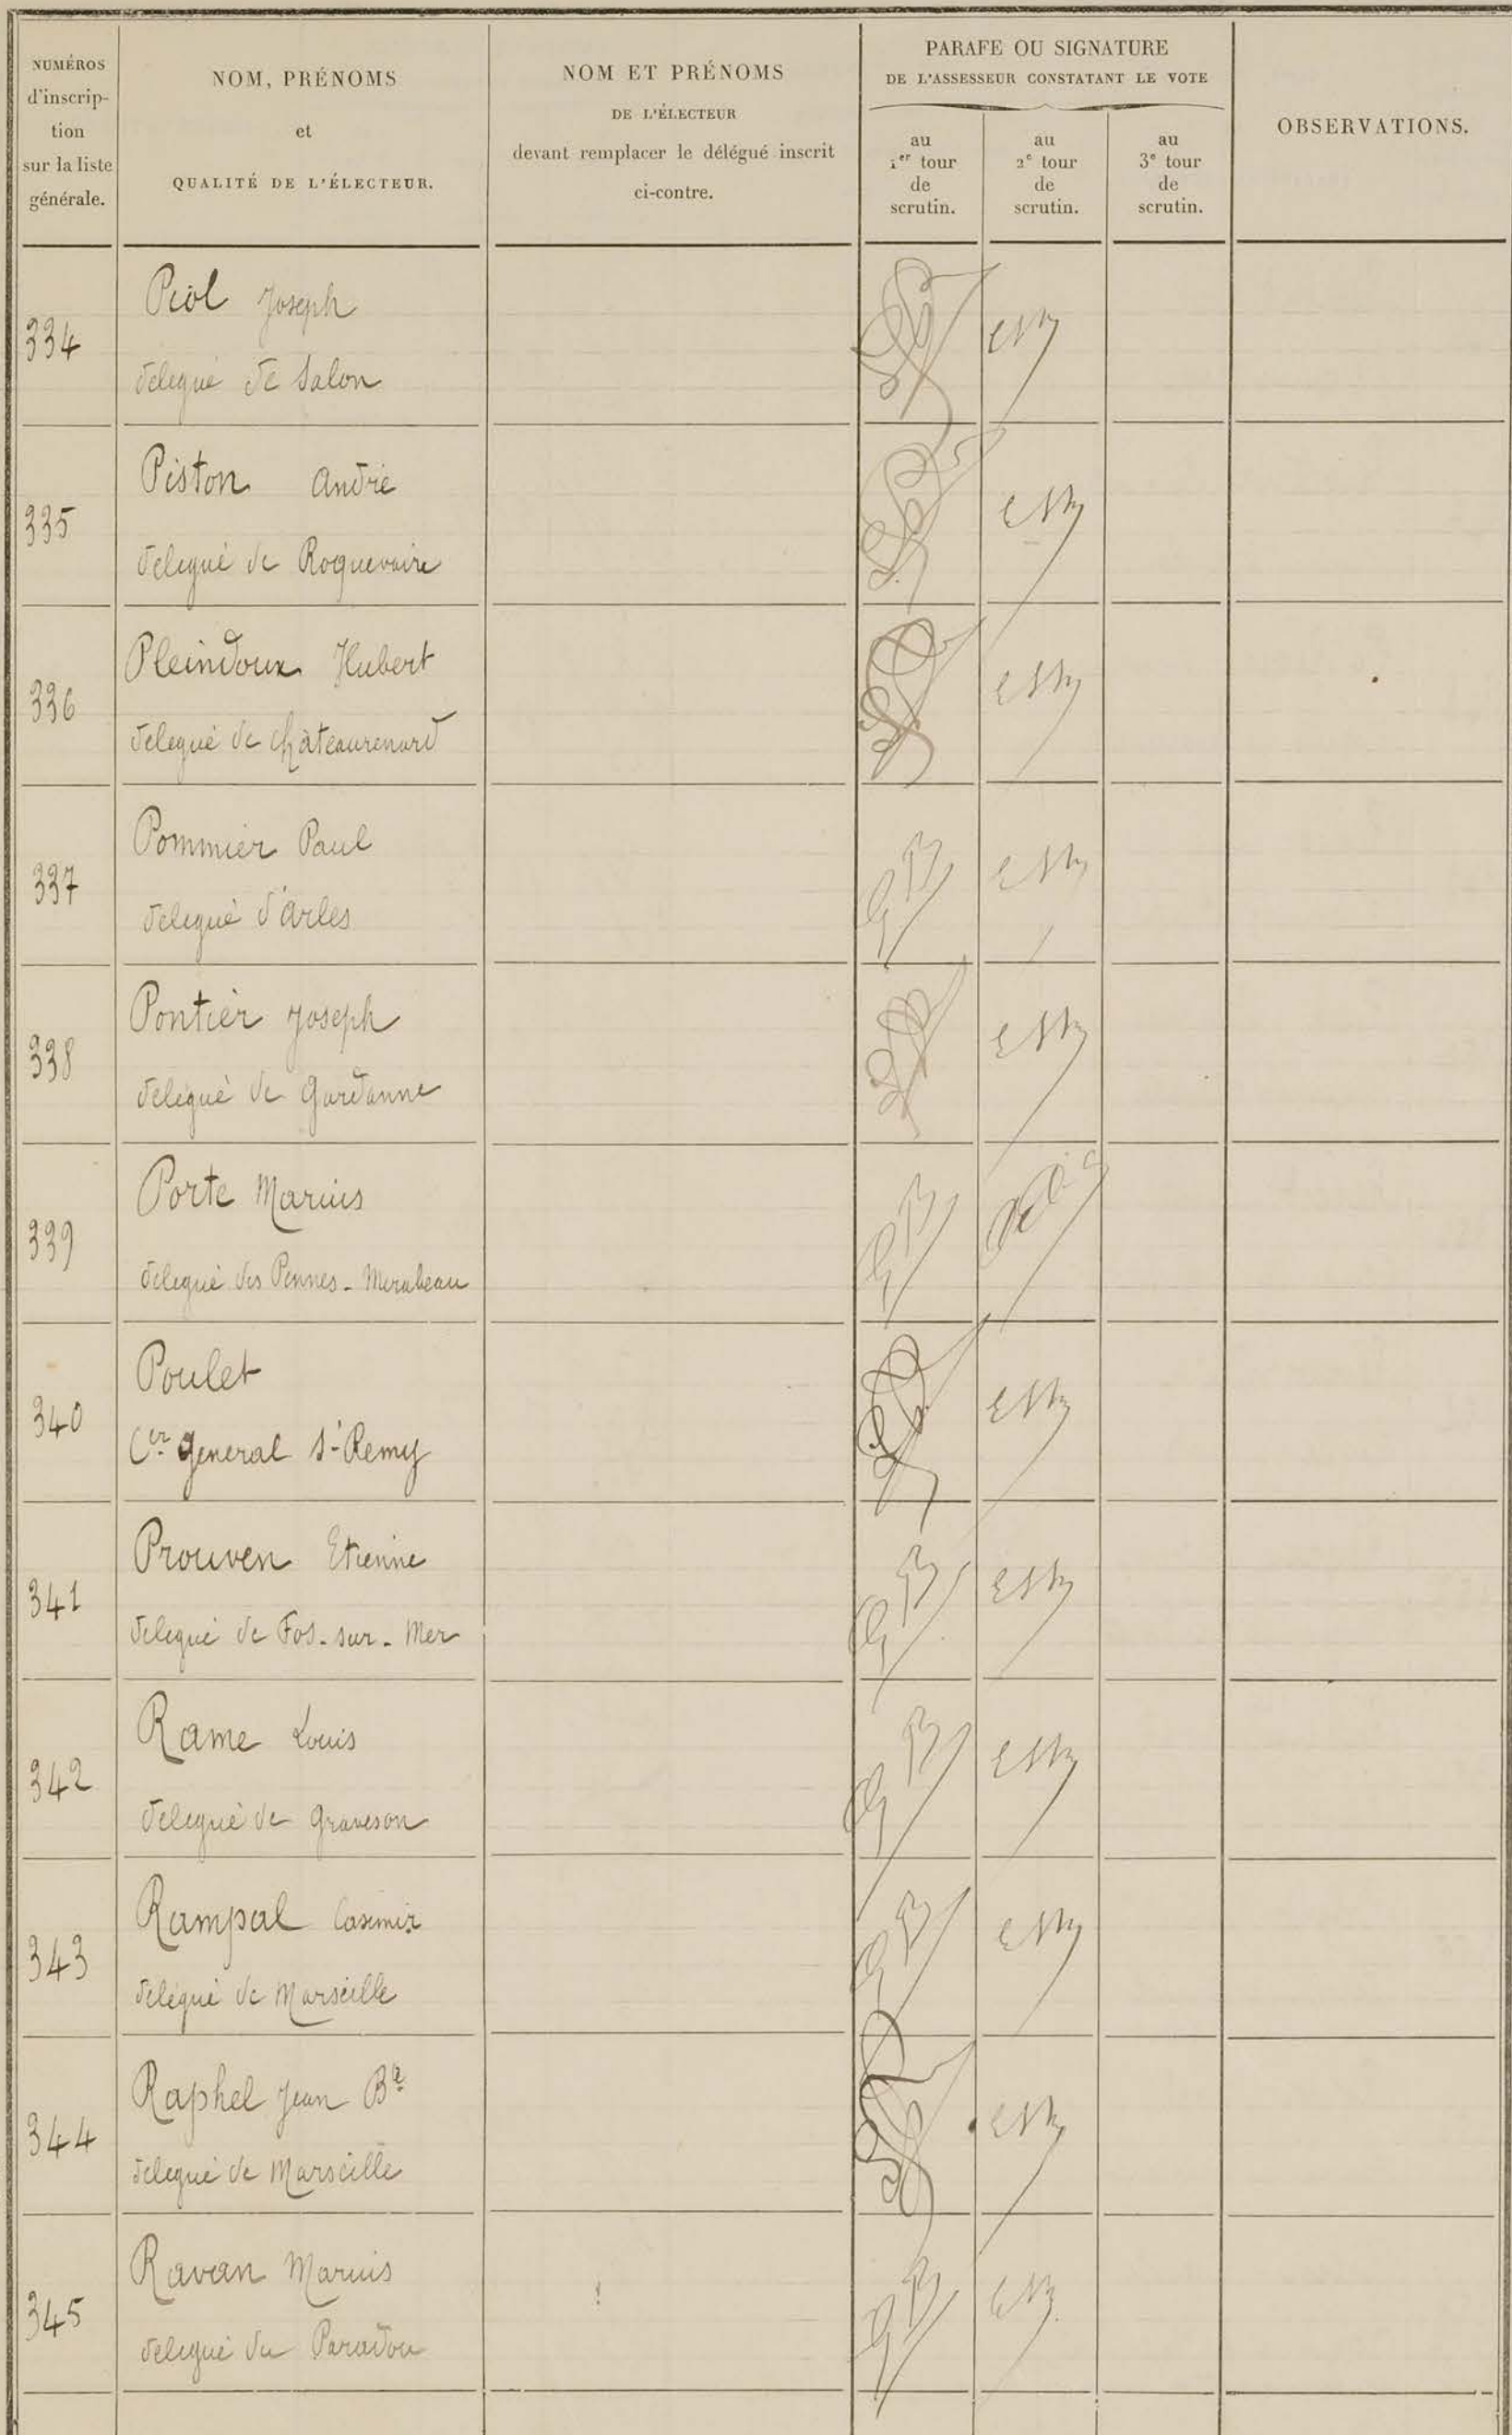 NUMÉROS
d'inscrip-
tion
sur la liste
générale.
NOM, PRÉNOMS
et
QUALITÉ DE L'ÉLECTEUR.
NOM ET PRÉNOMS
DE L'ÉLECTEUR
devant remplacer le délégué inscrit
ci-contre.
PARAFE OU SIGNATURE
DE L'ASSESSEUR CONSTATANT LE VOTE
au
1er tour
de
scrutin.
au
2e tour
de
scrutin.
au
3e tour
de
scrutin.
OBSERVATIONS.
334
Piol Joseph
délégué de Salon
335
Piston André
délégué de Roquevaire
336
Pleindoux Hubert
délégué de Châteaurenard
337
Pommier Paul
délégué d'Arles
338
Pontier Joseph
délégué de Gardanne
339
Porte Marius
délégué des Pennes-Mirabeau
340
Poulet
Cer general St Remy
341
Prouven Etienne
délégué de Fos-sur-Mer
342
Rame Louis
délégué de Graveson
343
Rampal Casimir
délégué de Marseille
344
Raphel Jean Bte
délégué de Marseille
345
Ravan Marius
délégué du Paradou